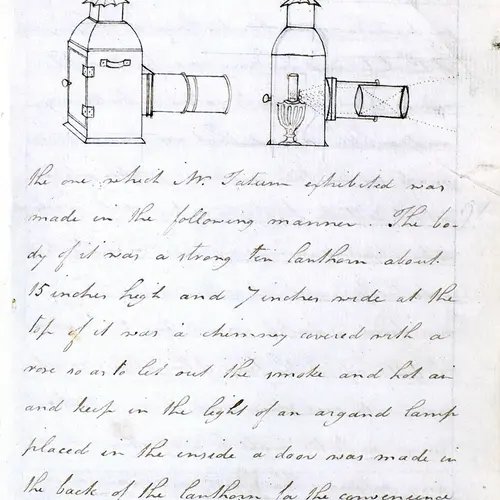 the one which Mr. Tatum exhibited was
made in the following manner. The bo-
dy of it was a strong tin lanthorn about
15 inches high and 7 inches wide at the
top of it was a chimney covered with a
rose so as to let out the smoke and hot air
and keep in the light of an argand lamp
placed in the inside a door was made in
the back of the lanthorn for the convenience